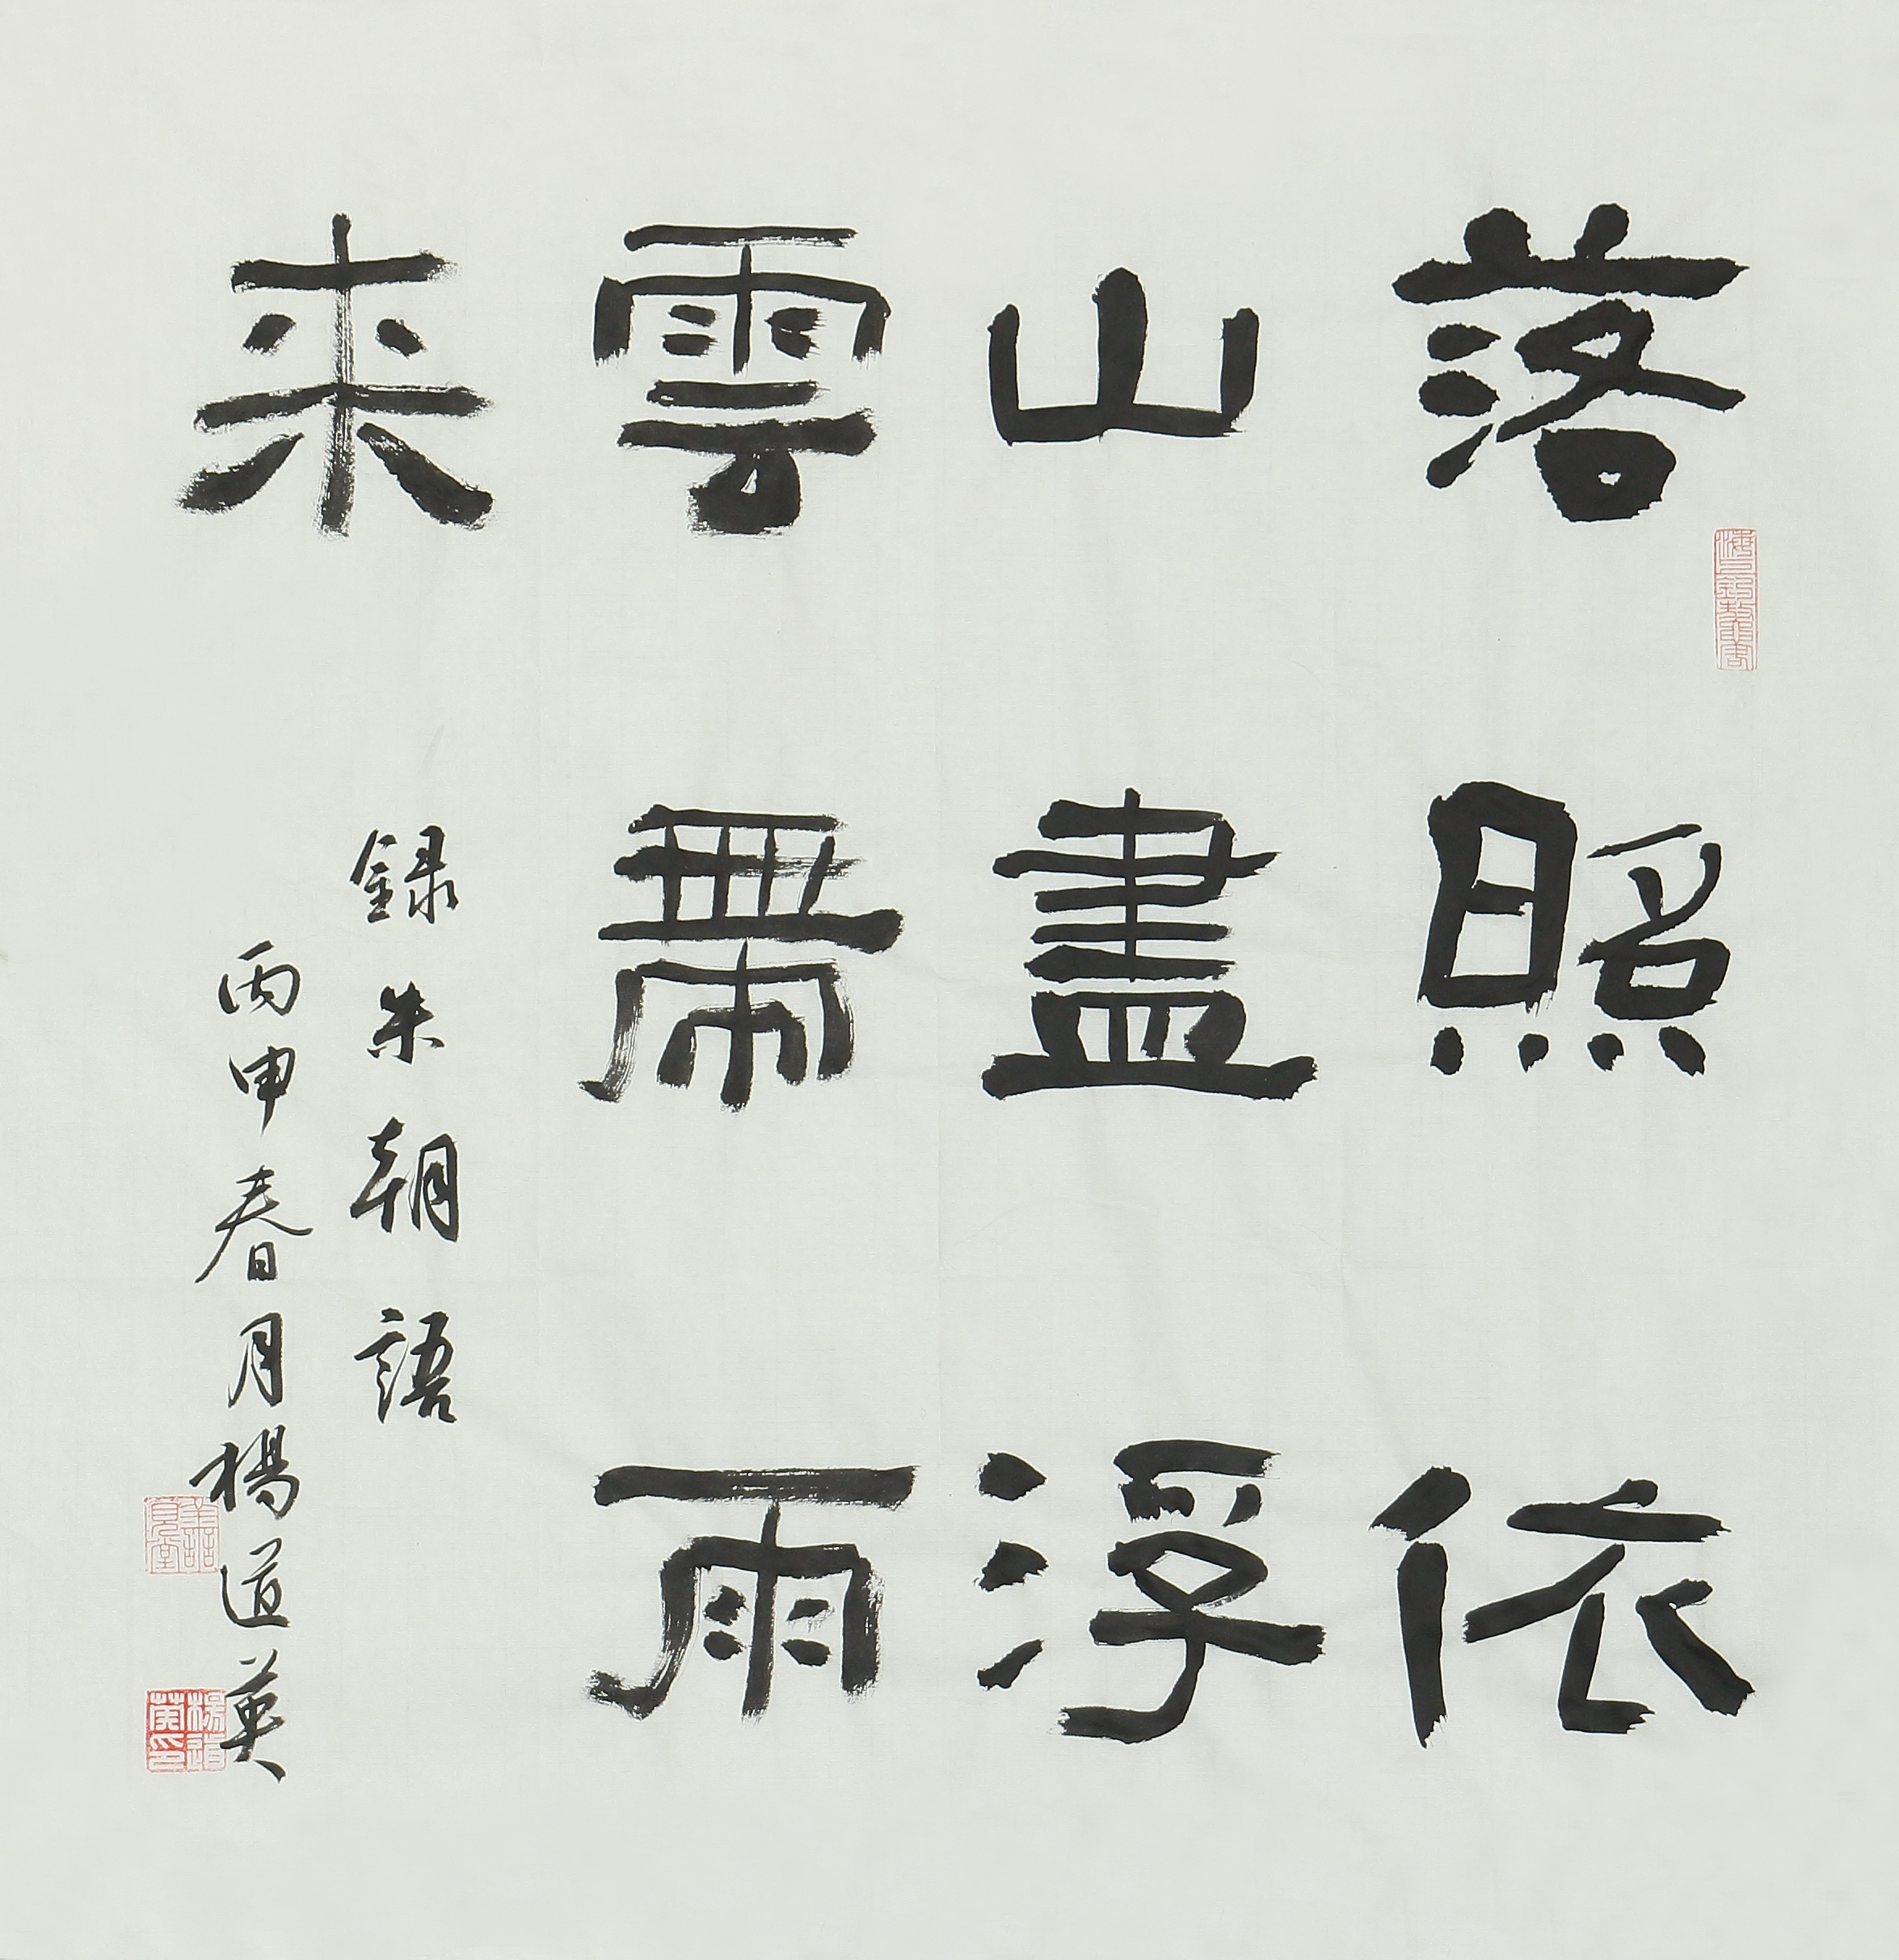 落照依
山盡浮
雲帶雨
来
録朱朝語
丙申春月楊道英
楊道英印